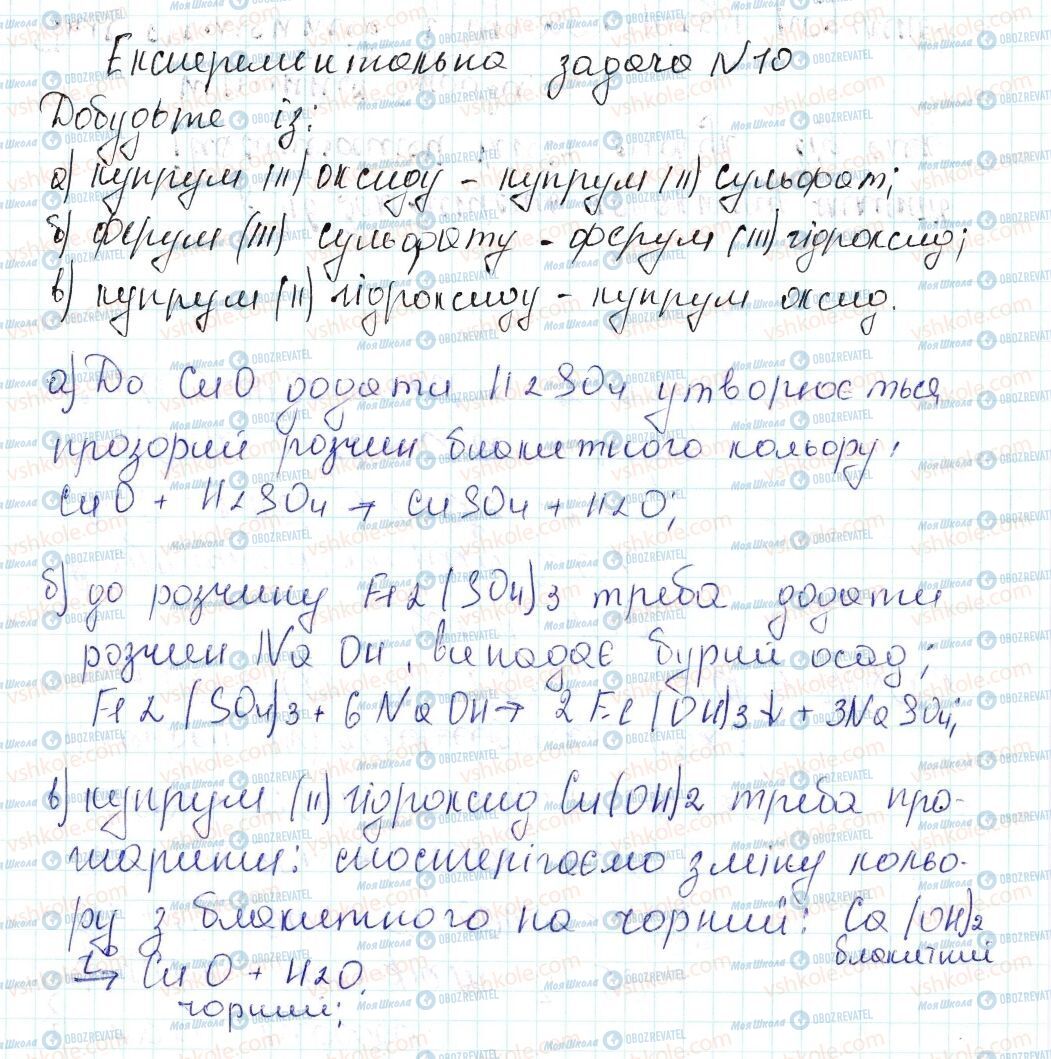 Експерементальна задача №10
Добудьте із:
а) купрум (II) оксиду - купрум (II) сульфат;
б) ферум (III) сульфату - ферум (III) гідроксид;
в) купрум (II) гідроксиду - купрум оксид.
а) До CuO додати H2SO4 утворюється
прозорий розчин блакитного кольору:
CuO + H2SO4 → CuSO4 + H2O;
б) до розчину Fe2(SO4)3 треба додати
розчин NaOH, випадає бурий осад;
Fe2(SO4)3 + 6NaOH → 2Fe(OH)3↓ + 3NaSO4;
в) купрум (II) гідроксид Cu(OH)2 треба про-
жарити: спостерігаємо зміну кольо-
ру з блакитного на чорний: Ca(OH)2
блакитний
t° → CuO + H2O.
чорний;